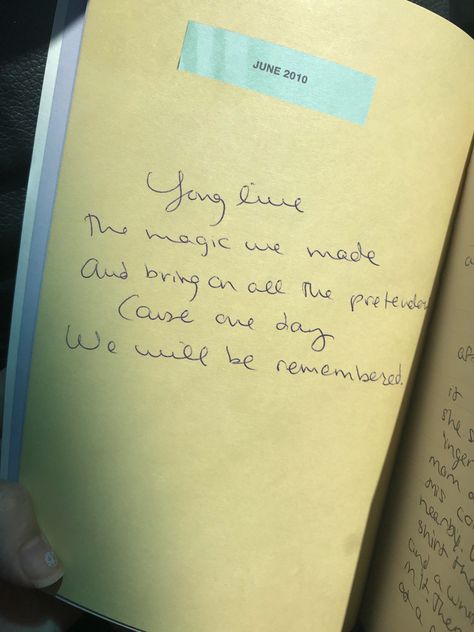 JUNE 2010
Long live
The magic we made
And bring on all the pretenders
Cause one day
We will be remembered.
a
af
it
she s
inger
mom
his co
nearby.
shirt the
and a